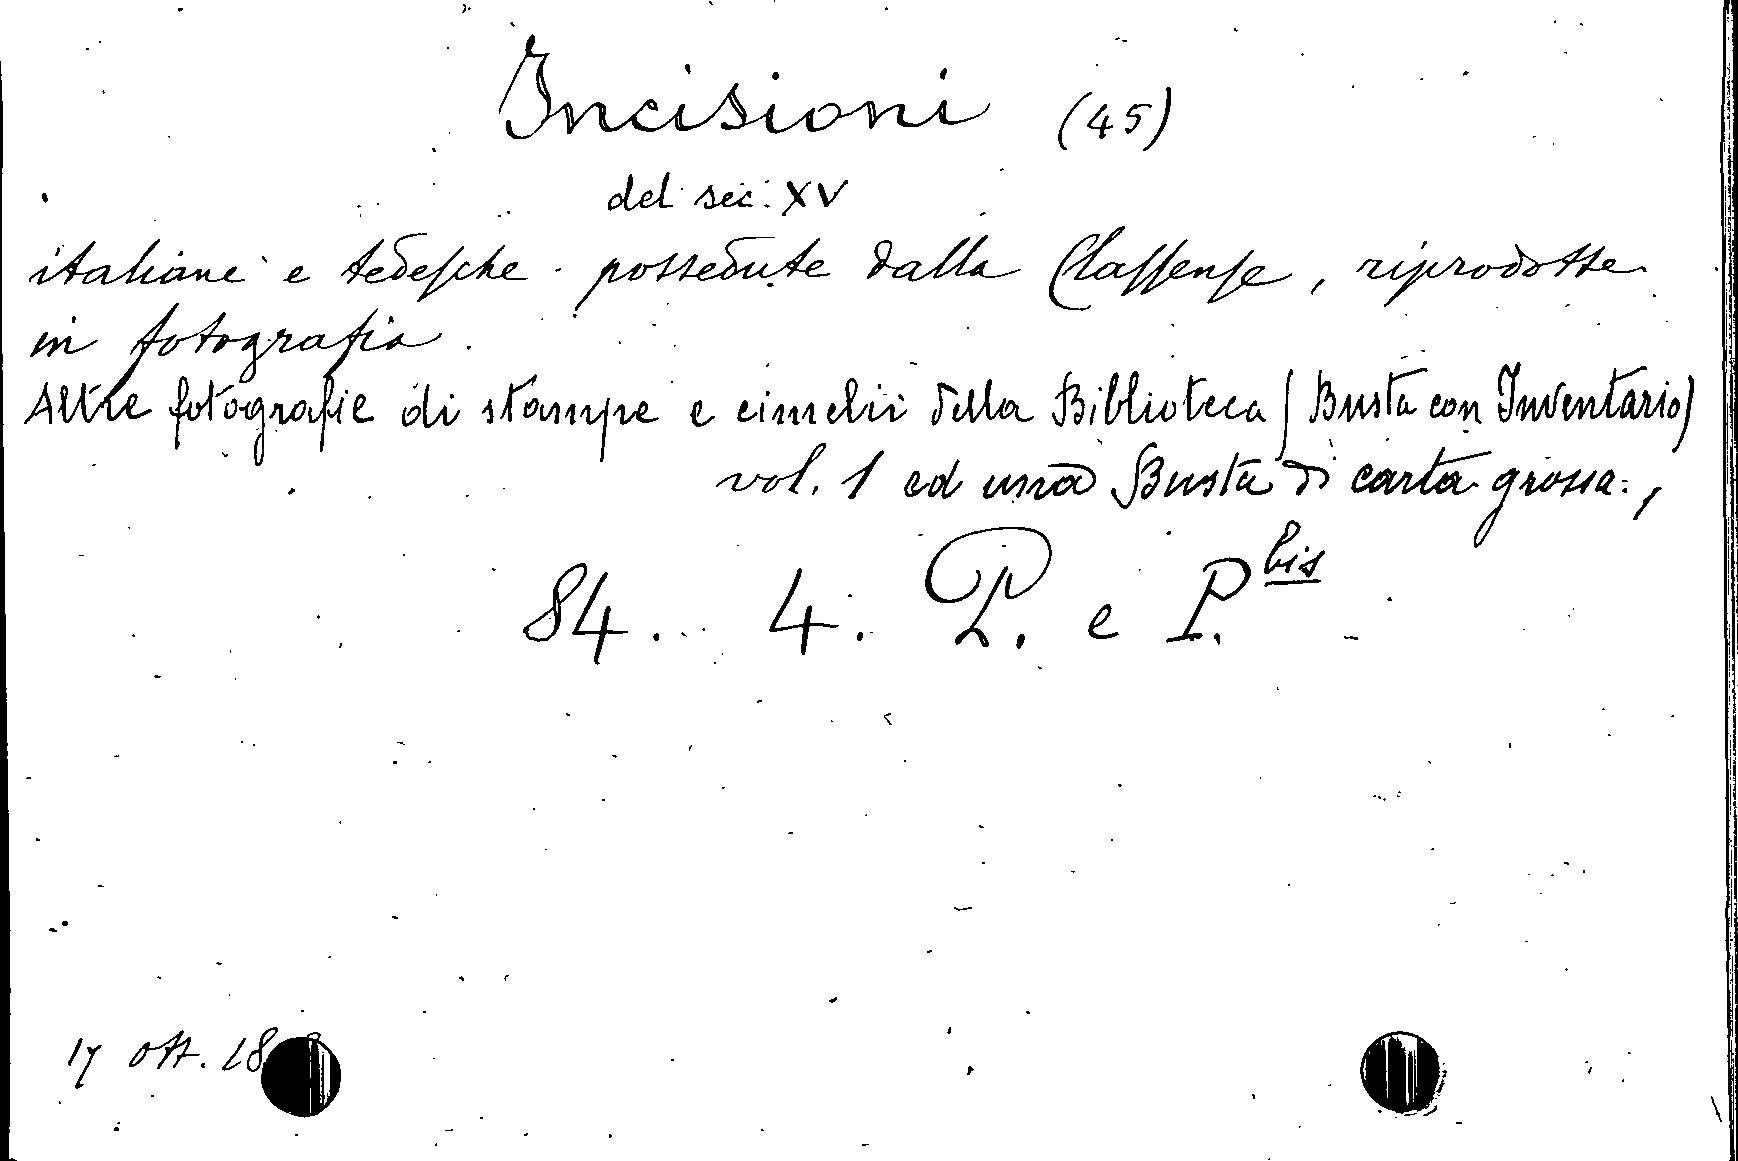 Incisioni (45)
del sec. XV
italiane e tedesche possedute dalla Classense, riprodotte
in fotografia.
Altre fotografie di stampe e cimelii della Biblioteca (Busta con Inventario)
vol. 1 ed una Busta di carta grossa.,
84. 4. P. e P. bis
17 ott. 18